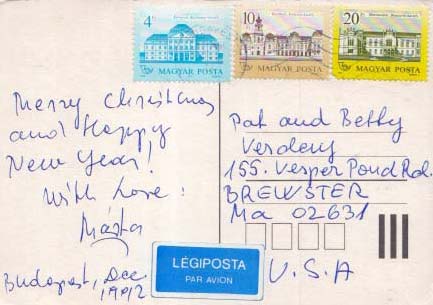 4Ft
10Ft
20Ft
MAGYAR POSTA
MAGYAR POSTA
MAGYAR POSTA
Merry Christmas
and Happy
New Year!
With Love:
Márta
Budapest, Dec.
1992
LÉGIPOSTA
PAR AVION
Pat and Betty
155. Vesper Pond Rd.
BREWSTER
Ma 02631
U.S.A